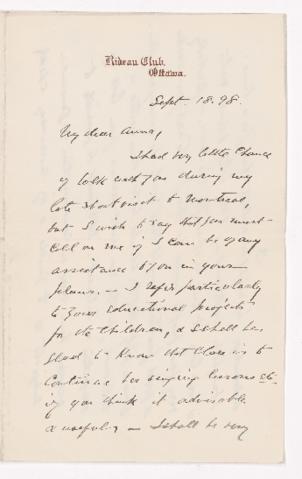 Rideau Club,
Ottawa.
Sept. 18. 98.
My dear Anna,
I had very little chance
of talk with you during my
late short visit to Montreal,
but I wish to say that you must
call on me if I can be of any
assistance to you in your
plans. — I refer particularly
to your educational projects
for the children, & shall be
glad to know that Clara is to
continue her singing lessons etc
if you think it advisable
& useful. — I shall be very